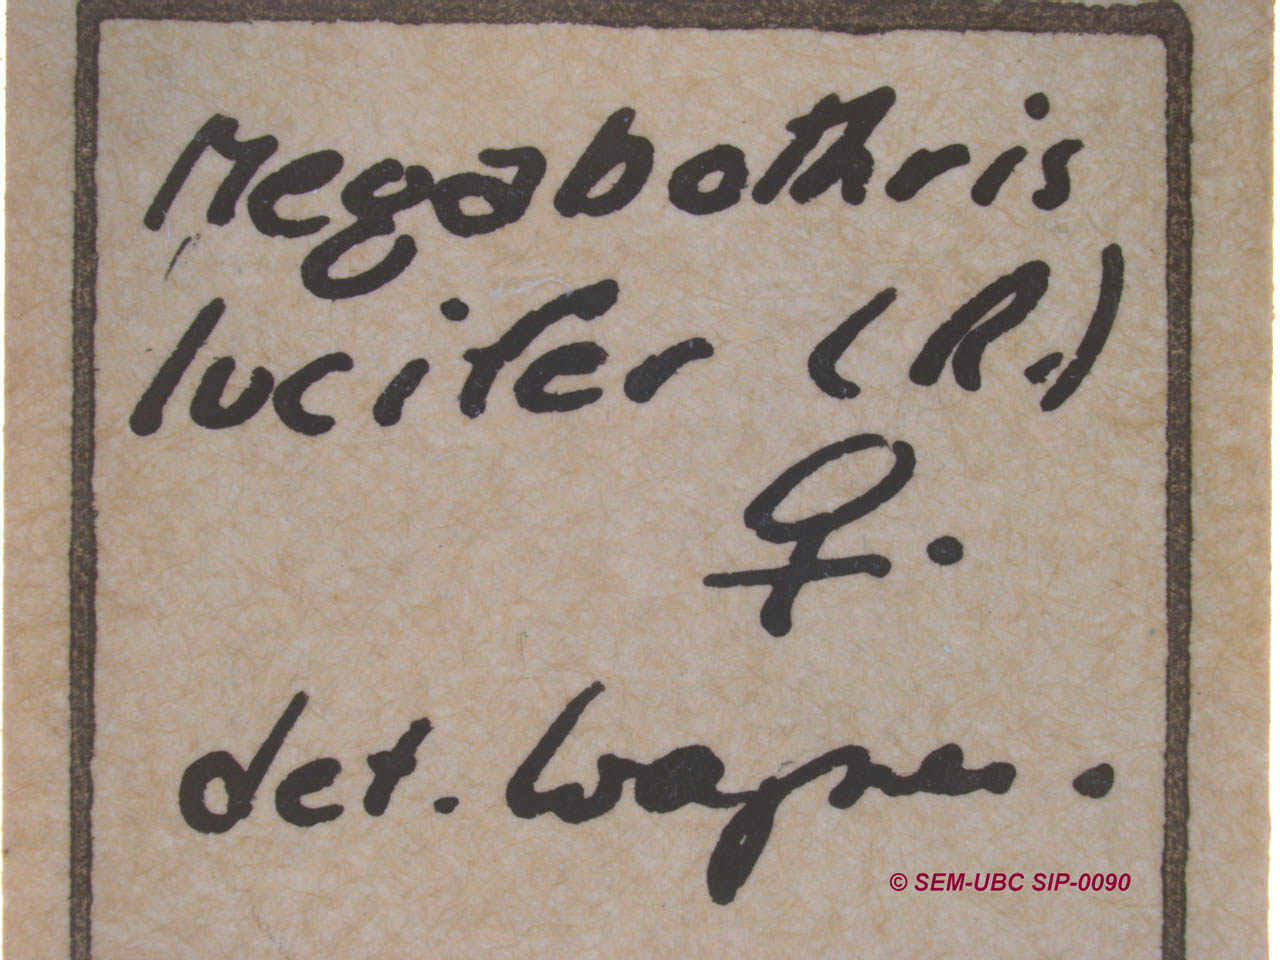 Megabothris
lucifer (R.)
♀.
det. Wagner.
© SEM-UBC SIP-0090